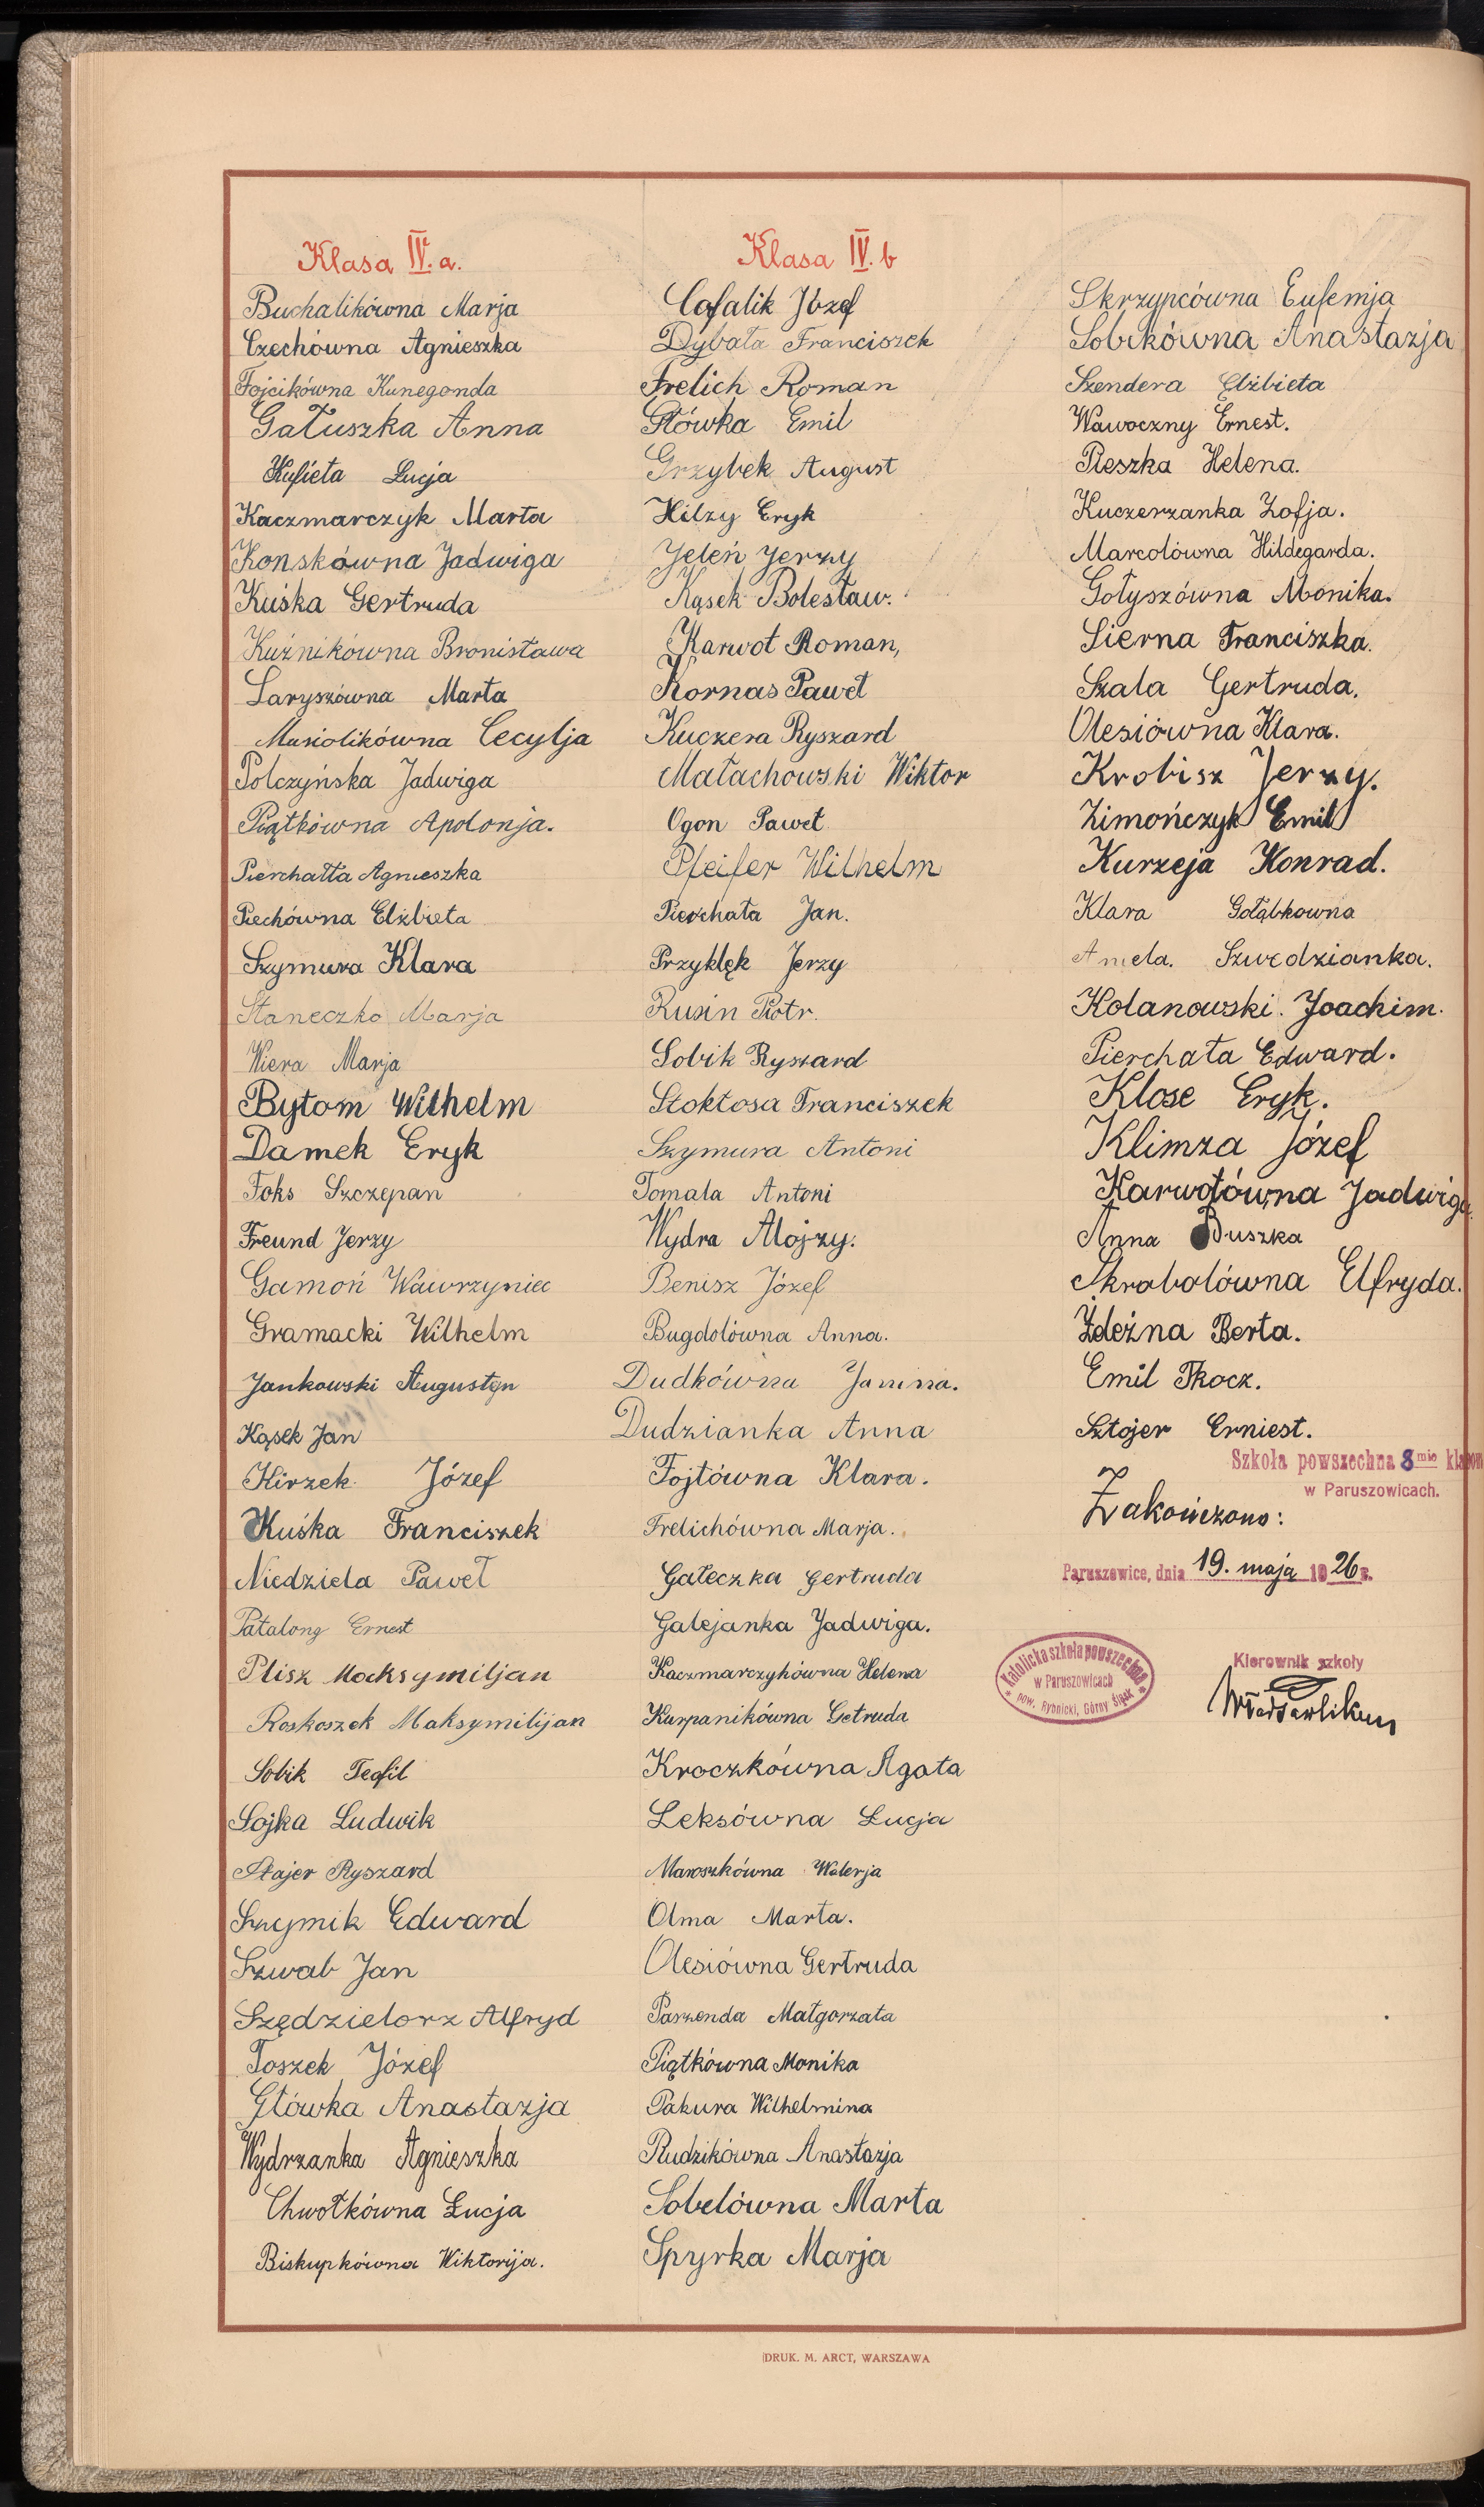 Klasa IV. a.
Buchalikówna Marja
Czechówna Agnieszka
Fojcikówna Kunegonda
Gałuszka Anna
Kufieta Łucja
Kaczmarczyk Marta
Konskówna Jadwiga
Kuśka Gertruda
Kuźnikówna Bronisława
Laryszówna Marta
Musiolikówna Cecylja
Polczyńska Jadwiga
Piątkówna Apolonja.
Pierchałła Agnieszka
Piechówna Elżbieta
Szymura Klara
Staneczko Marja
Wiera Marja
Bytom Wilhelm
Damek Eryk
Foks Szczepan
Freund Jerzy
Gamoń Wawrzyniec
Gramacki Wilhelm
Jankowski Augustyn
Kąsek Jan
Kirzek Józef
Kuśka Franciszek
Niedziela Paweł
Patalong Ernest
Plisz Maksymiljan
Roskoszek Maksymilijan
Sobik Teofil
Sojka Ludwik
Stajer Ryszard
Szymik Edward
Szwab Jan
Szędzielorz Alfryd
Toszek Józef
Główka Anastazja
Wydrzanka Agnieszka
Chwołkówna Łucja
Biskupkówna Wiktorija.
Klasa IV. b
Cofalik Józef
Dybała Franciszek
Frelich Roman
Główka Emil
Grzybek August
Hilzy Eryk
Jeleń Jerzy
Kąsek Bolesław.
Karwot Roman,
Kornas Paweł
Kuczera Ryszard
Małachowski Wiktor
Ogon Paweł
Pfeifer Wilhelm
Pierchała Jan.
Przyklęk Jerzy
Rusin Piotr.
Sobik Ryszard
Stokłosa Franciszek
Szymura Antoni
Tomala Antoni
Wydra Alojzy.
Benisz Józef
Bugdolówna Anna.
Dudkówna Janina.
Dudzianka Anna
Fojtówna Klara.
Frelichówna Marja.
Gałeczka Gertruda
Galejanka Jadwiga.
Kaczmarczykówna Helena
Kurpanikówna Getruda
Kroczkówna Agata
Leksówna Łucja
Maroszkówna Walerja
Olma Marta.
Olesiówna Gertruda
Parzenda Małgorzata
Piątkówna Monika
Pakura Wilhelmina
Rudzikówna Anastazja
Sobelówna Marta
Spyrka Marja
Skrzypcówna Eufemja
Sobikówna Anastazja
Szendera Elżbieta
Wawoczny Ernest.
Pieszka Helena.
Kuczerzanka Zofja.
Marcolówna Hildegarda.
Gołyszówna Monika.
Sierna Franciszka.
Szala Gertruda.
Olesiówna Klara.
Krobisz Jerzy.
Zimończyk Emil
Kurzeja Konrad.
Klara Gołąbkowna
Aniela. Szwedzianka.
Kolanowski. Joachim.
Pierchała Edward.
Klose Eryk.
Klimza Józef
Karwotówna Jadwiga
Anna Duszka
Skrobolówna Elfryda.
Zdeżna Berta.
Emil Tkocz.
Sztojer Erniest.
Szkoła powszechna 8mio klasowa
w Paruszowicach.
Zakończono:
Paruszowice, dnia 19. maja 1926 r.
Katolicka szkoła powszechna
w Paruszowicach
pow. Rybnicki, Górny Śląsk
Kierownik szkoły
DRUK. M. ARCT, WARSZAWA